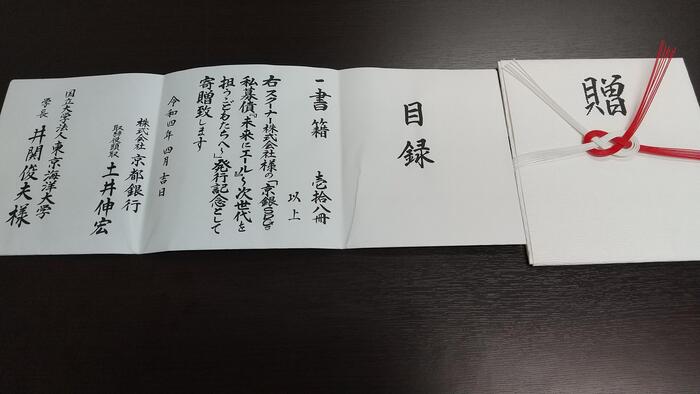 贈
目録
一 書籍 壱拾八冊
以上
右スターナー株式会社様の「京銀SDGs
私募債『未来にエール』～次世代を
担う子どもたちへ～」発行記念として
寄贈致します
令和四年四月吉日
株式会社 京都銀行
取締役頭取 土井伸宏
国立大学法人 東京海洋大学
学長 井関俊夫様